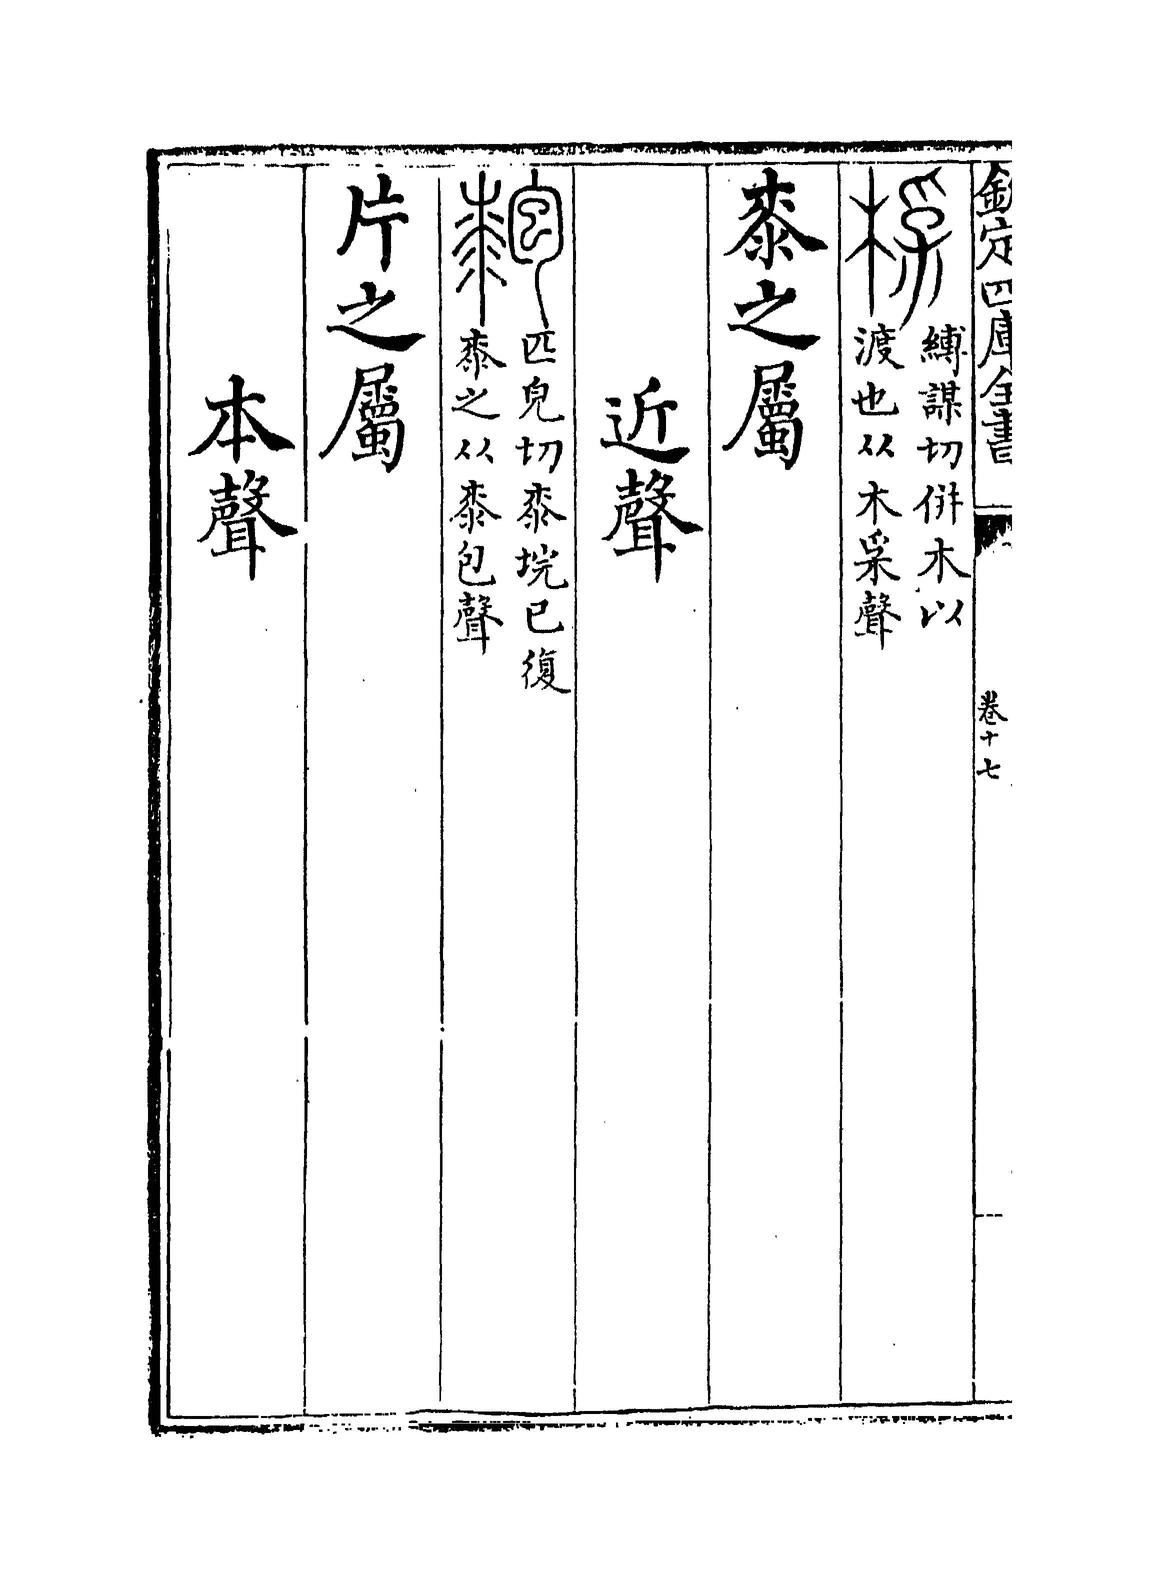 欽定四庫全書
卷十七
桴
縛謀切併木以
渡也从木采聲
桼之屬
近聲
匹皃切桼垸已復
桼之从桼包聲
片之屬
本聲